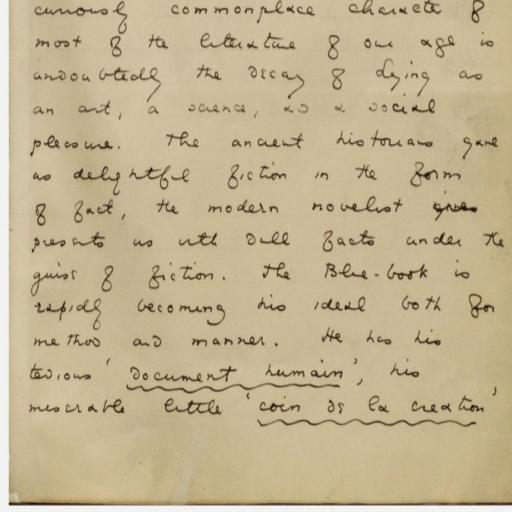 curiously commonplace character of
most of the literature of our age is
undoubtedly the decay of Lying as
an art, a science, and a social
pleasure. The ancient historians gave
us delightful fiction in the form
of fact, the modern novelist gives
presents us with dull facts under the
guise of fiction. The Blue-book is
rapidly becoming his ideal both for
method and manner. He has his
tedious 'document humain', his
miserable little 'coin de la creation'